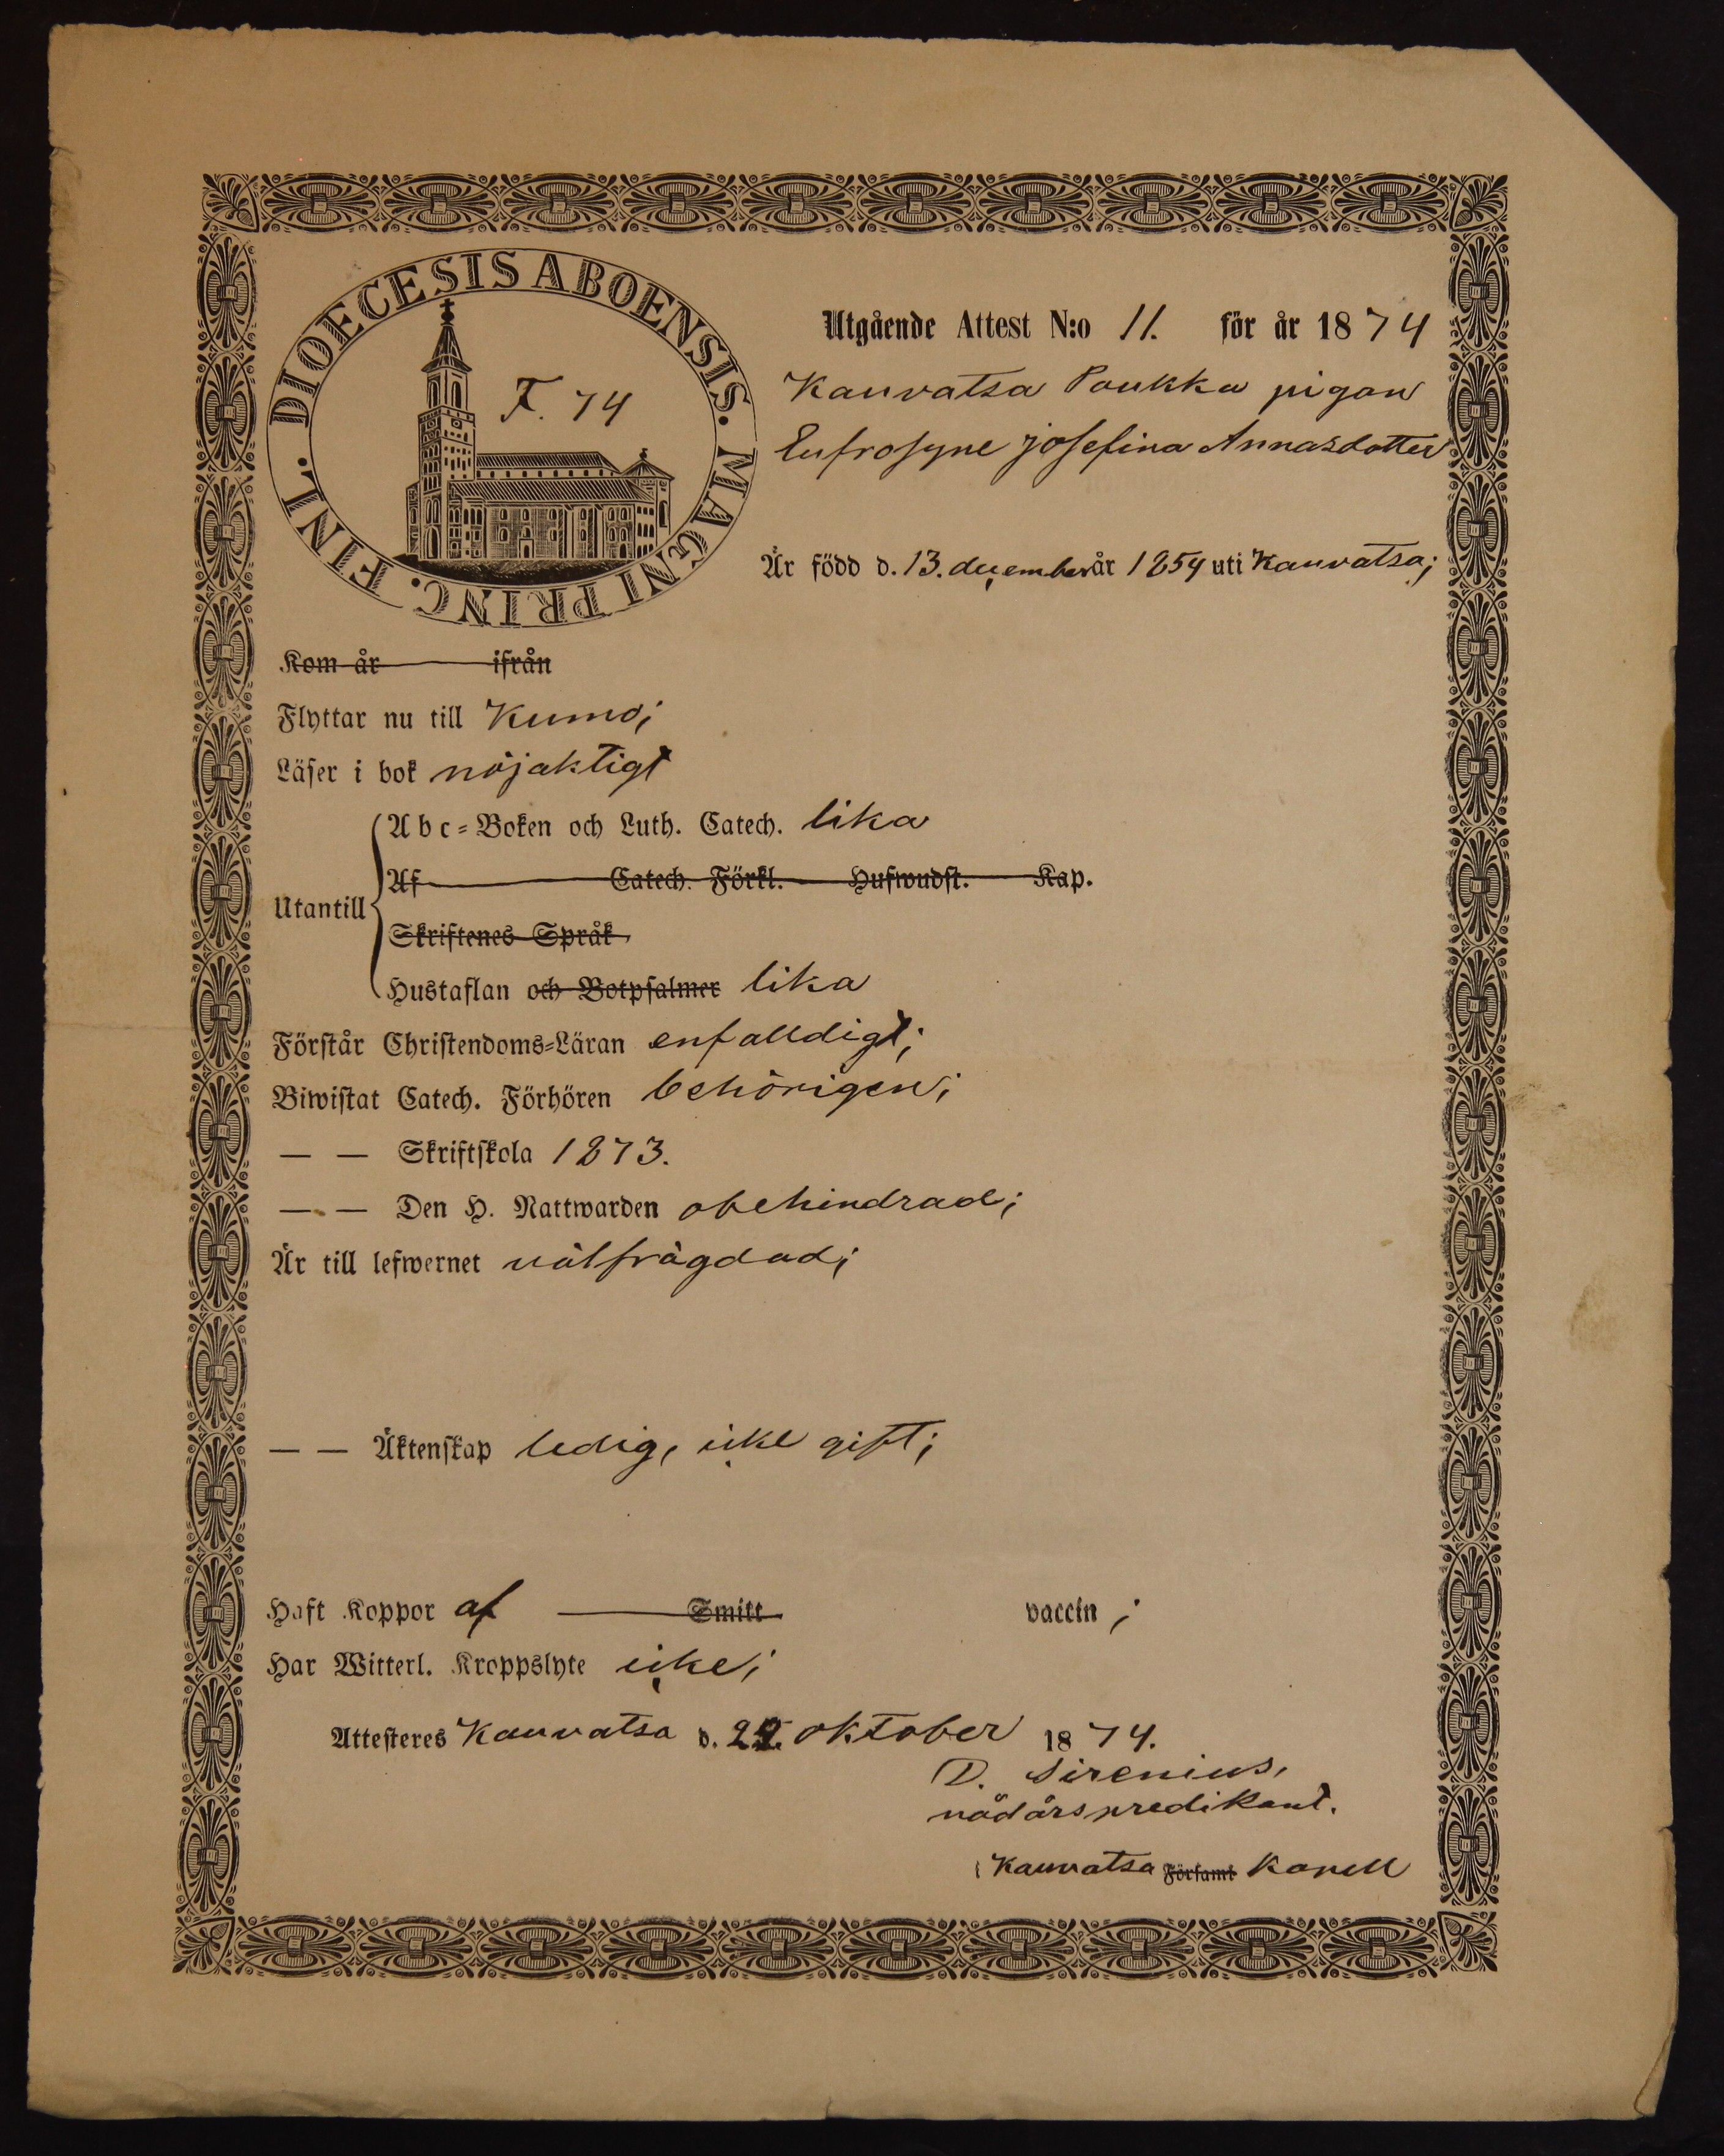 DIOECESIS ABOENSIS. MAGNI PRINC. FINL.
F. 74
Utgående Attest N:o 11. för år 1874
Kauvatsa Poukka pigan
Eufrosyne josefina Annasdotter
Är född d. 13. december år 1854 uti Kauvatsa;
Kom år ifrån
Flyttar nu till Kumo;
Läser i bok nöjaktigt
Abc-Boken och Luth. Catech. lika
Af Catech. Förkl. Hufwudst. Kap.
Utantill
Skriftenes Språk
Hustaflan och Botpsalmer lika
Förstår Christendoms-Läran enfalldigt;
Biwistat Catech. Förhören behörigen;
— — Skriftskola 1873.
— — Den H. Nattwarden obehindrad;
Är till lefwernet välfrägdad;
— — Äktenskap ledig, icke gift;
Haft Koppor af Smitt vaccin;
Har Witterl. Kroppslyte icke;
Attesteres Kauvatsa d. oktober 1874.
D. Sirenius,
nådårspredikant.
i Kauvatsa Församl Kapell